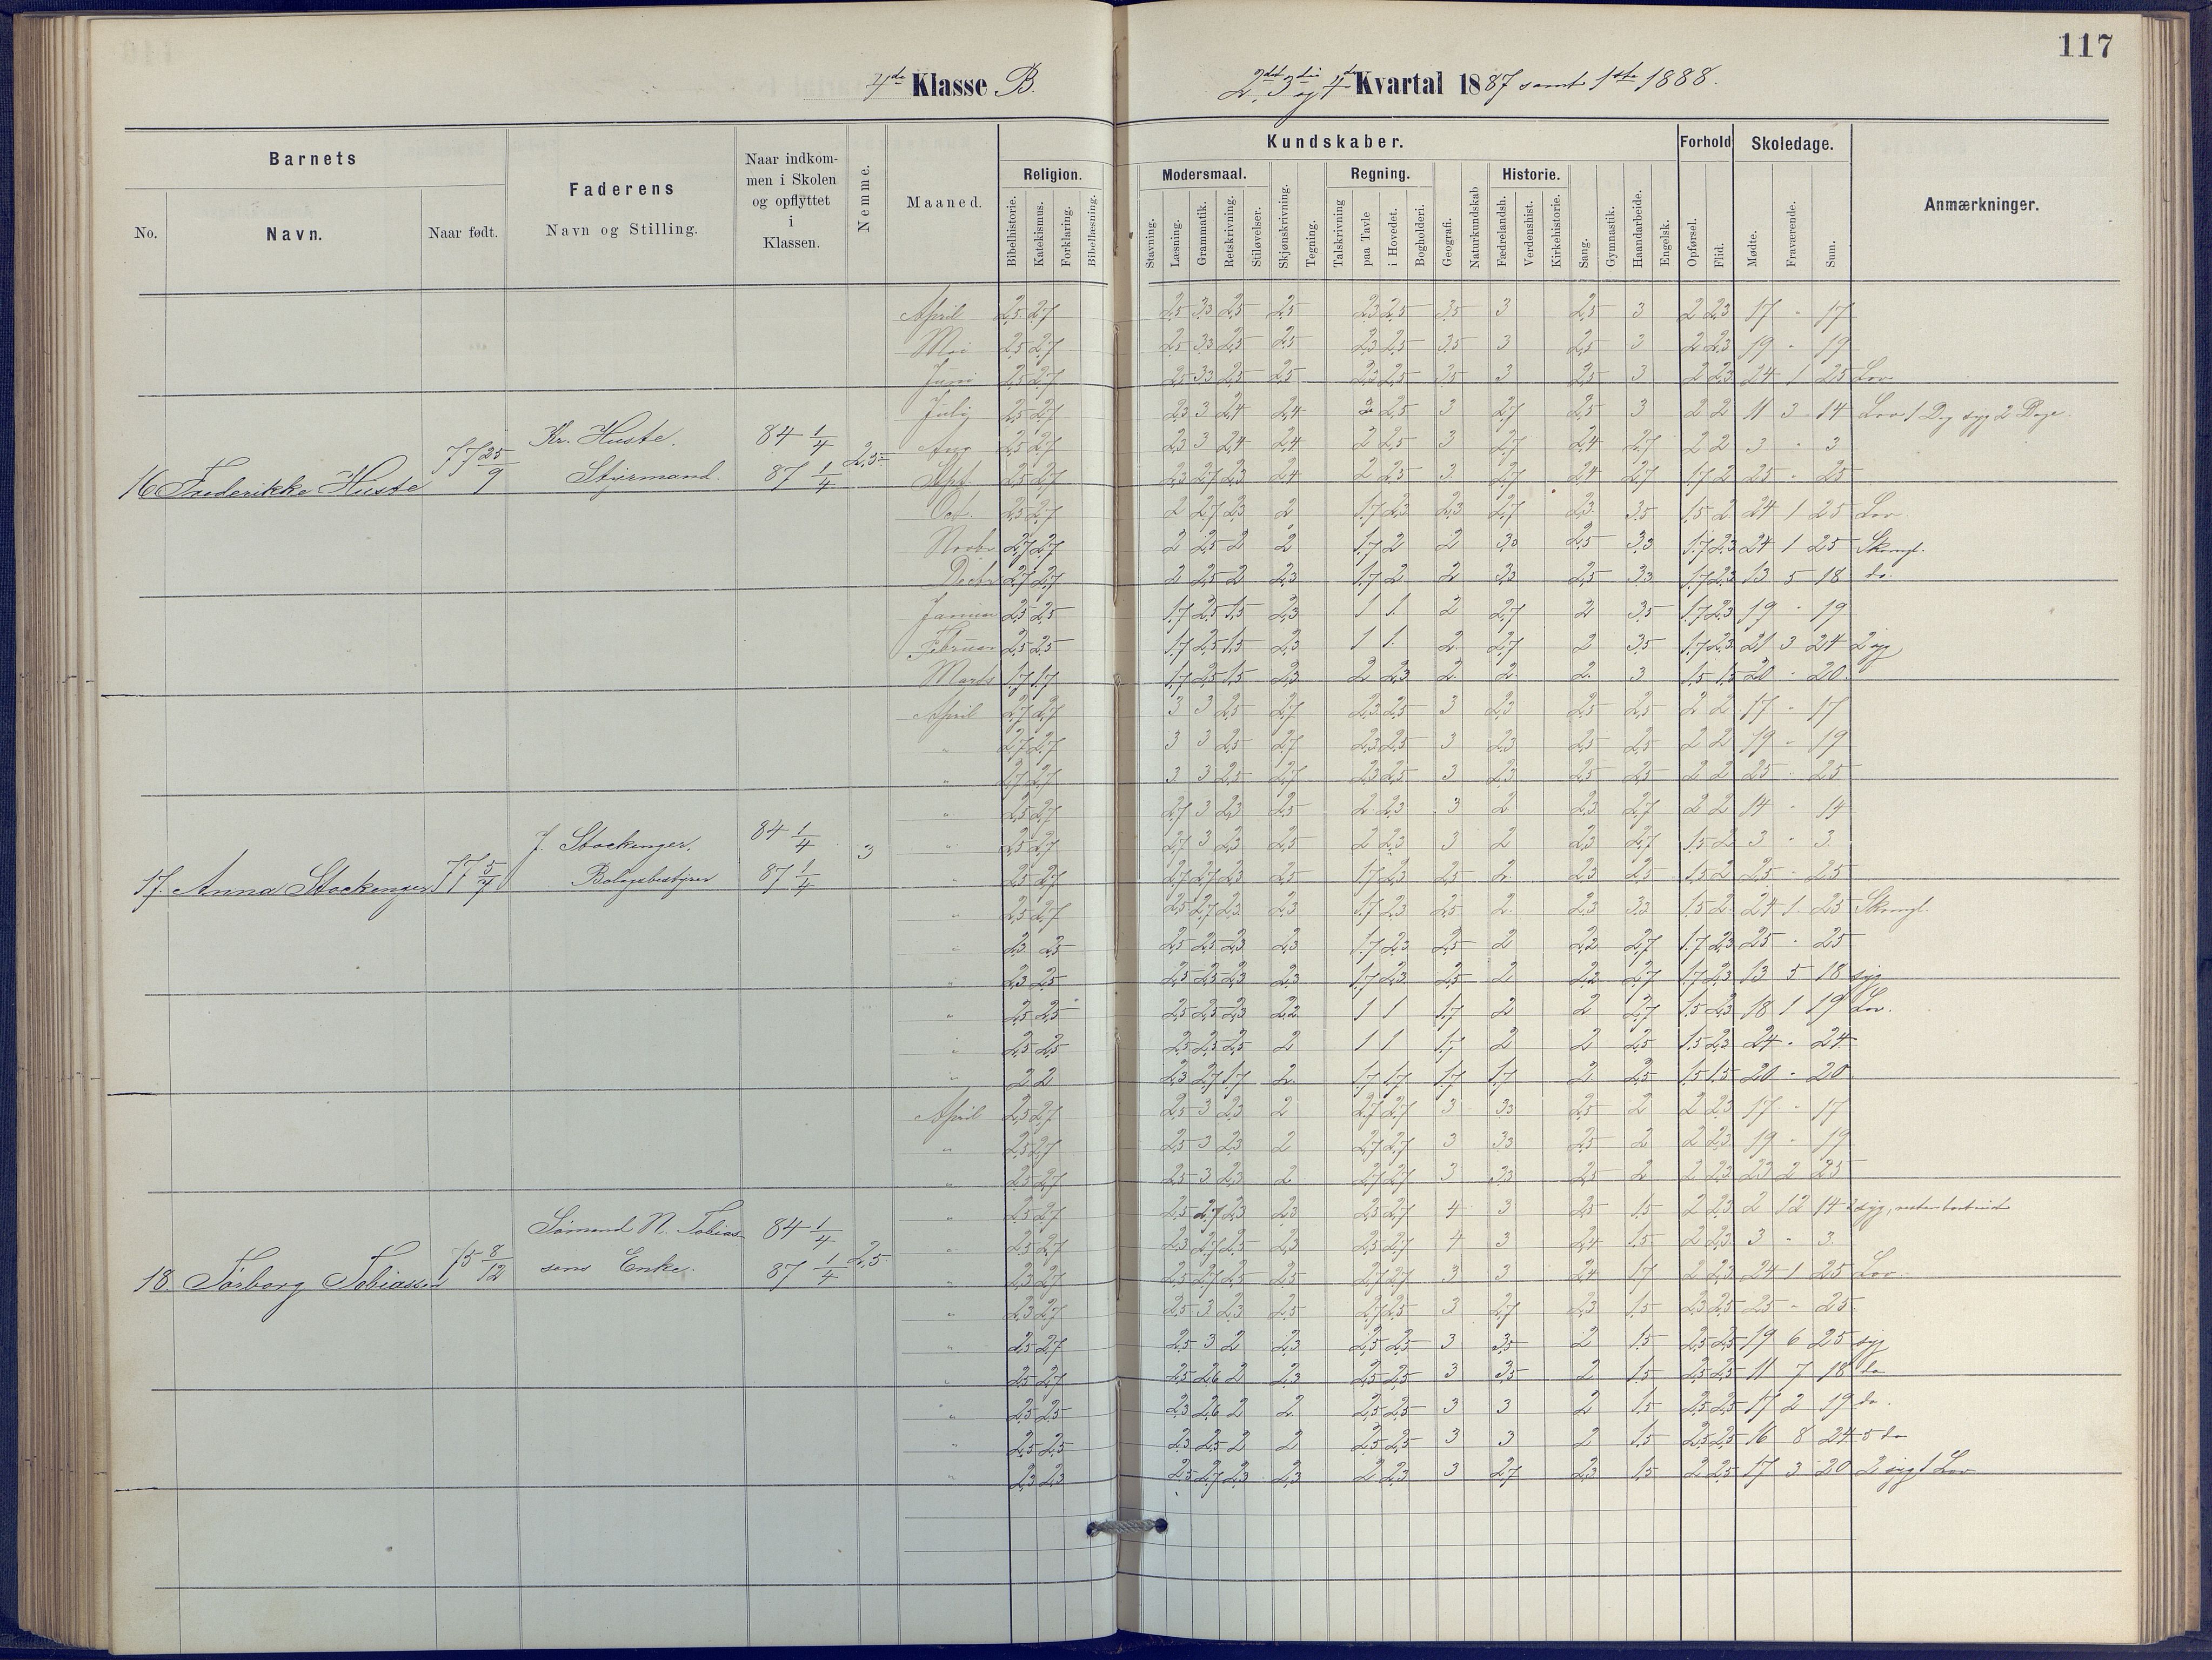 117
4de Klasse B.
2det, 3die og 4de Kvartal 1887 samt 1ste 1888.
Barnets
No.
Navn.
Naar født.
Faderens
Navn og Stilling.
Naar indkom-
men i Skolen
og opflyttet
i
Klassen.
Nemme.
Maaned.
Kundskaber.
Religion.
Bibelhistorie.
Katekismus.
Forklaring.
Bibellæsning.
Modersmaal.
Stavning.
Læsning.
Grammatik.
Retskrivning.
Stiløvelser.
Skjønskrivning.
Tegning.
Regning.
Talskrivning
paa Tavle
i Hovedet.
Bogholderi.
Geografi.
Naturkundskab
Historie.
Fædrelandsh.
Verdenshist.
Kirkehistorie.
Sang.
Gymnastik.
Haandarbeide.
Engelsk.
Forhold
Opførsel.
Flid.
Skoledage.
Mødte.
Fraværende.
Sum.
Anmærkninger.
April 2,5 2,7 2,5 3,3 2,5 2,5 2,3 2,5 3,5 3 2,5 3 2 2,3 17 - 17
Mai 2,5 2,7 2,5 3,3 2,5 2,5 2,3 2,5 3,5 3 2,5 3 2 2,3 19 - 19
Juni 2,5 2,7 2,5 3,3 2,5 2,5 2,3 2,5 3,5 3 2,5 3 2 2,3 24 1 25 Lov
July 2,5 2,7 2,3 3 2,4 2,4 2 2,5 3 2,7 2,5 3 2 2 11 3 14 Lov 1 Dag syg 2 Dage.
16 Frederikke Huste 77 25/9 Kr. Huste. Styrmand. 84 1/4 87 1/4 2,5
Aug 2,5 2,7 2,3 3 2,4 2,4 2 2,5 3 2,7 2,4 2,7 2 2 3 - 3
Spt 2,5 2,7 2,3 2,7 2,3 2,4 2 2,5 3 2,7 2,4 2,7 1,7 2 25 - 25
Oct. 2,5 2,7 2 2,7 2,3 2 1,7 2,3 2,3 2,7 2,3 3,5 1,5 2 24 1 25 Lov
Novbr 2,7 2,7 2 2,5 2 2 1,7 2 2 3,3 2,5 3,3 1,7 2,3 24 1 25 Skrngl.
Decbr 2,7 2,7 2 2,5 2 2,3 1,7 2 2 3,3 2,5 3,3 1,7 2,3 13 5 18 do.
Januar 2,5 2,5 1,7 2,5 1,5 2,3 1 1 2 2,7 2 3,5 1,7 2,3 19 - 19
Februar 2,5 2,5 1,7 2,5 1,5 2,3 1 1 2 2,7 2 3,5 1,7 2,3 21 3 24 2 syg
Marts 1,7 1,7 1,7 2,5 1,5 2,3 2 2,3 2 2 2 3 1,5 1,5 20 - 20
April 2,7 2,7 3 3 2,5 2,7 2,3 2,5 3 2,3 2,5 2,5 2 2 17 - 17
" 2,7 2,7 3 3 2,5 2,7 2,3 2,5 3 2,3 2,5 2,5 2 2 19 - 19
" 2,7 2,7 3 3 2,5 2,7 2,3 2,5 3 2,3 2,5 2,5 2 2 25 - 25
" 2,5 2,7 2,7 3 2,3 2,5 2 2,3 3 2 2,3 2,7 2 2 14 - 14
17. Anna Stockenger 77 5/7 J. Stockenger. Bolagsbestyrer 84 1/4 87 1/4 3
" 2,5 2,7 2,7 3 2,3 2,5 2 2,3 3 2 2,3 2,7 1,5 2 3 - 3
" 2,5 2,7 2,7 2,7 2,3 2,5 1,7 2,3 2,5 2 2,3 2,5 1,5 2 25 - 25
" 2,5 2,7 2,5 2,7 2,3 2,3 1,7 2,3 2,5 2 2,3 3,3 1,5 2 24 1 25 Skrngl.
" 2,3 2,5 2,5 2,5 2,3 2,3 1,7 2,3 2,5 2 2,2 2,7 1,7 2,3 25 - 25
" 2,3 2,5 2,5 2,5 2,3 2,3 1,7 2,3 2,5 2 2,2 2,7 1,7 2,3 13 5 18 syg
" 2,5 2,5 2,5 2,5 2,3 2,2 1 1 1,7 2 2 2,7 1,5 2,3 18 1 19 Lov.
" 2,5 2,5 2,5 2,5 2,5 2 1 1 1,7 2 2 2,5 1,5 2,3 24 - 24
" 2 2 2,3 2,7 1,7 2 1,7 1,7 1,7 1,7 2 2,5 1,5 1,5 20 - 20
April 2,5 2,7 2,5 3 2,3 2 2,7 2,7 3 3,3 2,5 2 2 2,3 17 - 17
" 2,5 2,7 2,5 3 2,3 2 2,7 2,7 3 3,3 2,5 2 2 2,3 19 - 19
" 2,5 2,7 2,5 3 2,3 2 2,7 2,7 3 3,3 2,5 2 2 2,3 23 2 25
" 2,5 2,7 2,5 2,7 2,3 2,3 2,5 2,7 4 3 2,5 1,5 2 2,3 2 12 14 syg,
18. Torborg Tobiassen 75 8/12 Sømand N. Tobias- sens Enke. 84 1/4 87 1/4 2,5
" 2,5 2,7 2,3 2,7 2,5 2,3 2,5 2,7 4 3 2,4 1,5 2 2,3 3 - 3
" 2,3 2,7 2,5 2,7 2,5 2,5 2,7 2,7 3 3 2,4 1,7 2 2,3 24 1 25 Lov
" 2,3 2,7 2,5 3 2,3 2,5 2,7 2,5 3 2,7 2,3 1,5 2,3 2,5 25 - 25
" 2,5 2,7 2,5 3 2 2,3 2,5 2,5 3 3,5 2 1,5 2,5 2,5 19 6 25 syg
" 2,5 2,7 2,5 2,6 2 2,3 2,5 2,5 3 3,5 2 1,5 2,5 2,5 11 7 18 do
" 2,5 2,5 2,3 2,6 2 2 2,5 2,5 3 3 2 1,5 2,5 2,5 17 2 19 do.
" 2,5 2,5 2,3 2,5 2 2 2,5 2,5 3 3 2 1,5 2,5 2,5 16 8 24 5 do
" 2,3 2,3 2,5 2,7 2,3 2,3 2 2,3 3 2,7 2,3 1,5 2 2,5 17 3 20 2 syg 1 Lov